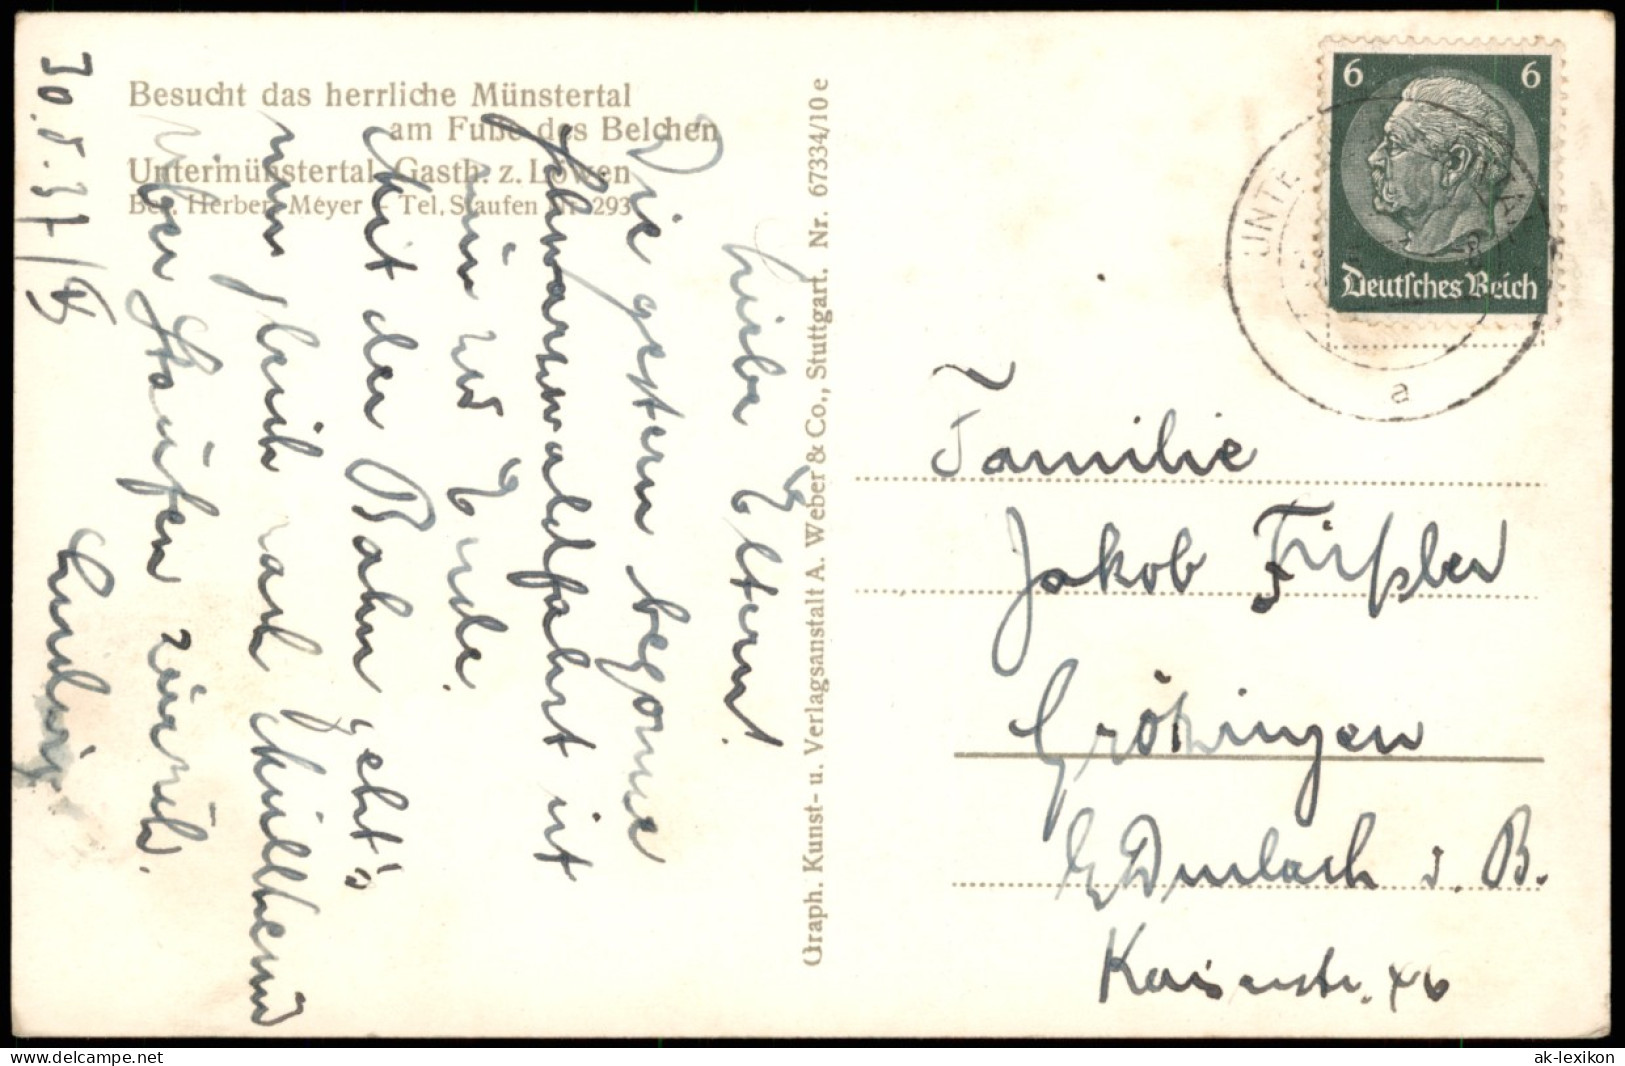 Besucht das herrliche Münstertal
am Fuße des Belchen
Untermünstertal Gasth. z. Löwen
Bes. Herbert Meyer - Tel. Staufen Nr. 293
30.5.37
Liebe Eltern!
Die gestern begonne
Schwarzwaldfahrt ist
nün zu Ende.
Mit der Bahn geht's
nun gleich nach Müllheim
über Staufen zürück.
Ludwig.
Graph. Kunst- u. Verlagsanstalt A. Weber & Co., Stuttgart. Nr. 67334/10 e
6 6
Deutsches Reich
UNTE
a
Familie
Jakob Füßler
Grötzingen
Durlach i. B.
Kaiserstr. 46
ak-lexikon.com
ak-lexikon